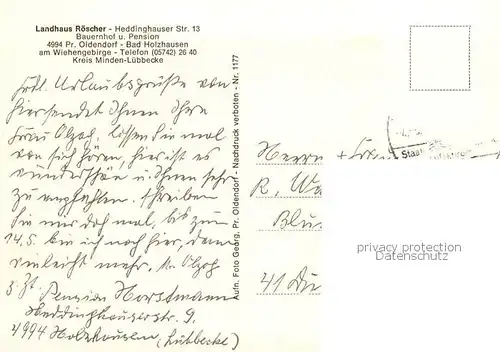 Landhaus Röscher - Heddinghauser Str. 13
Bauernhof u. Pension
4994 Pr. Oldendorf - Bad Holzhausen
am Wiehengebirge - Telefon (05742) 26 40
Kreis Minden-Lübbecke
Frdl. Urlaubsgrüße von
hier sendet Ihnen Ihre
Frau Olzog, lassen Sie mal
von sich hören, hier ist es
wunderschön u. Ihnen sehr
zu empfehlen. Schreiben
Sie mir doch mal, bis zum
14.5. bin ich noch hier, dann
vielleicht mehr. Olzog
z. Zt. Pension Horstmann
Heddinghauserstr. 9.
4994 Holzhausen (Lübbecke)
Aufn. Foto Georg, Pr. Oldendorf - Nachdruck verboten - Nr. 1177
Herrn + Frau
R. Wa
Blu
41 Du
Staat
privacy protection